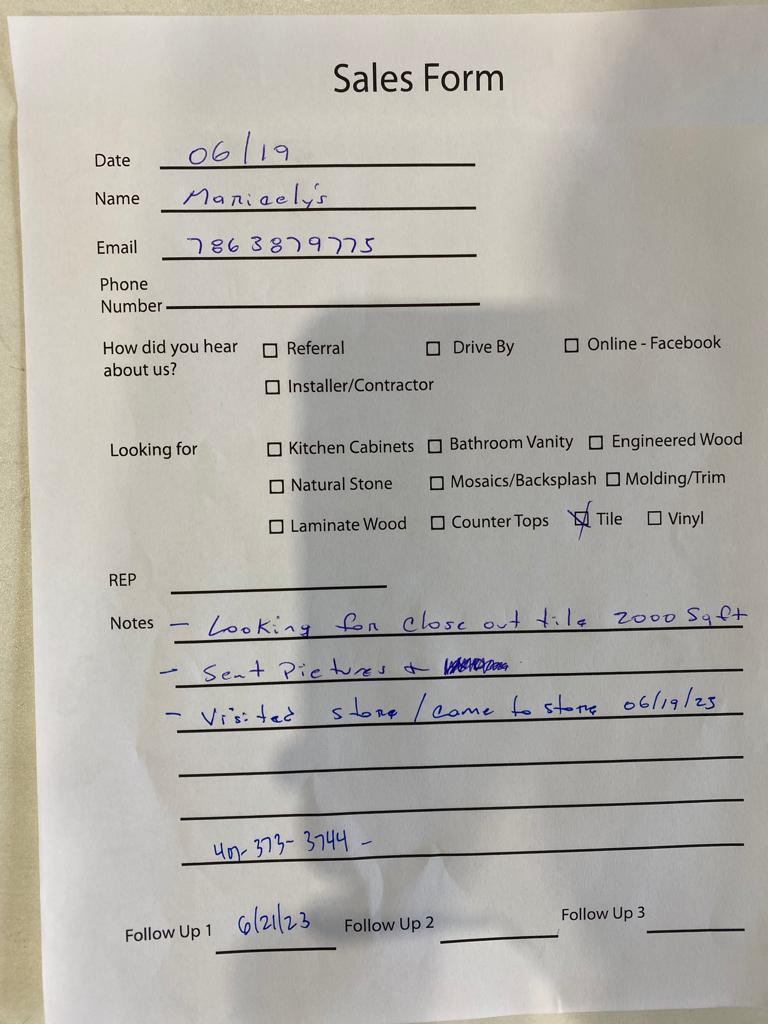 Sales Form
Date 06/19
Name Maricely's
Email 7863879775
Phone
Number
How did you hear about us? ☐ Referral ☐ Drive By ☐ Online - Facebook
☐ Installer/Contractor
Looking for ☐ Kitchen Cabinets ☐ Bathroom Vanity ☐ Engineered Wood
☐ Natural Stone ☐ Mosaics/Backsplash ☐ Molding/Trim
☐ Laminate Wood ☐ Counter Tops ☑ Tile ☐ Vinyl
REP
Notes - Looking for close out tile 2000 Sqft
- Sent Pictures +
- Visited store / came to store 06/19/23
407-373-3744 -
Follow Up 1 6/21/23 Follow Up 2 Follow Up 3